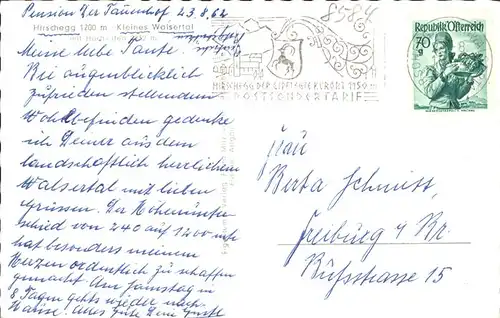 Pension Der Tannhof 23.8.62
Hirschegg 1200 m Kleines Walsertal
Meine liebe Tante.
Bei augenblicklich
zufrieden stellendem
Wohlbefinden gedenke
ich Deiner aus dem
landschaftlich herrlichem
Walsertal mit lieben
Grüssen. Der Höhenunter
schied von 240 auf 1200 mtr
hat besonders meinem
Herzen ordentlich zu schaffen
gemacht. Am Samstag in
8 Tagen gehts wieder nach
Hause. Alles Gute Dein
8564
HIRSCHEGG DER LUFTKURORT 1150 m
POSTSONDERTARIF
Republik Österreich
70
g
Frau
Berta Schmitt,
Freiburg / Br.
Rufsstrasse 15